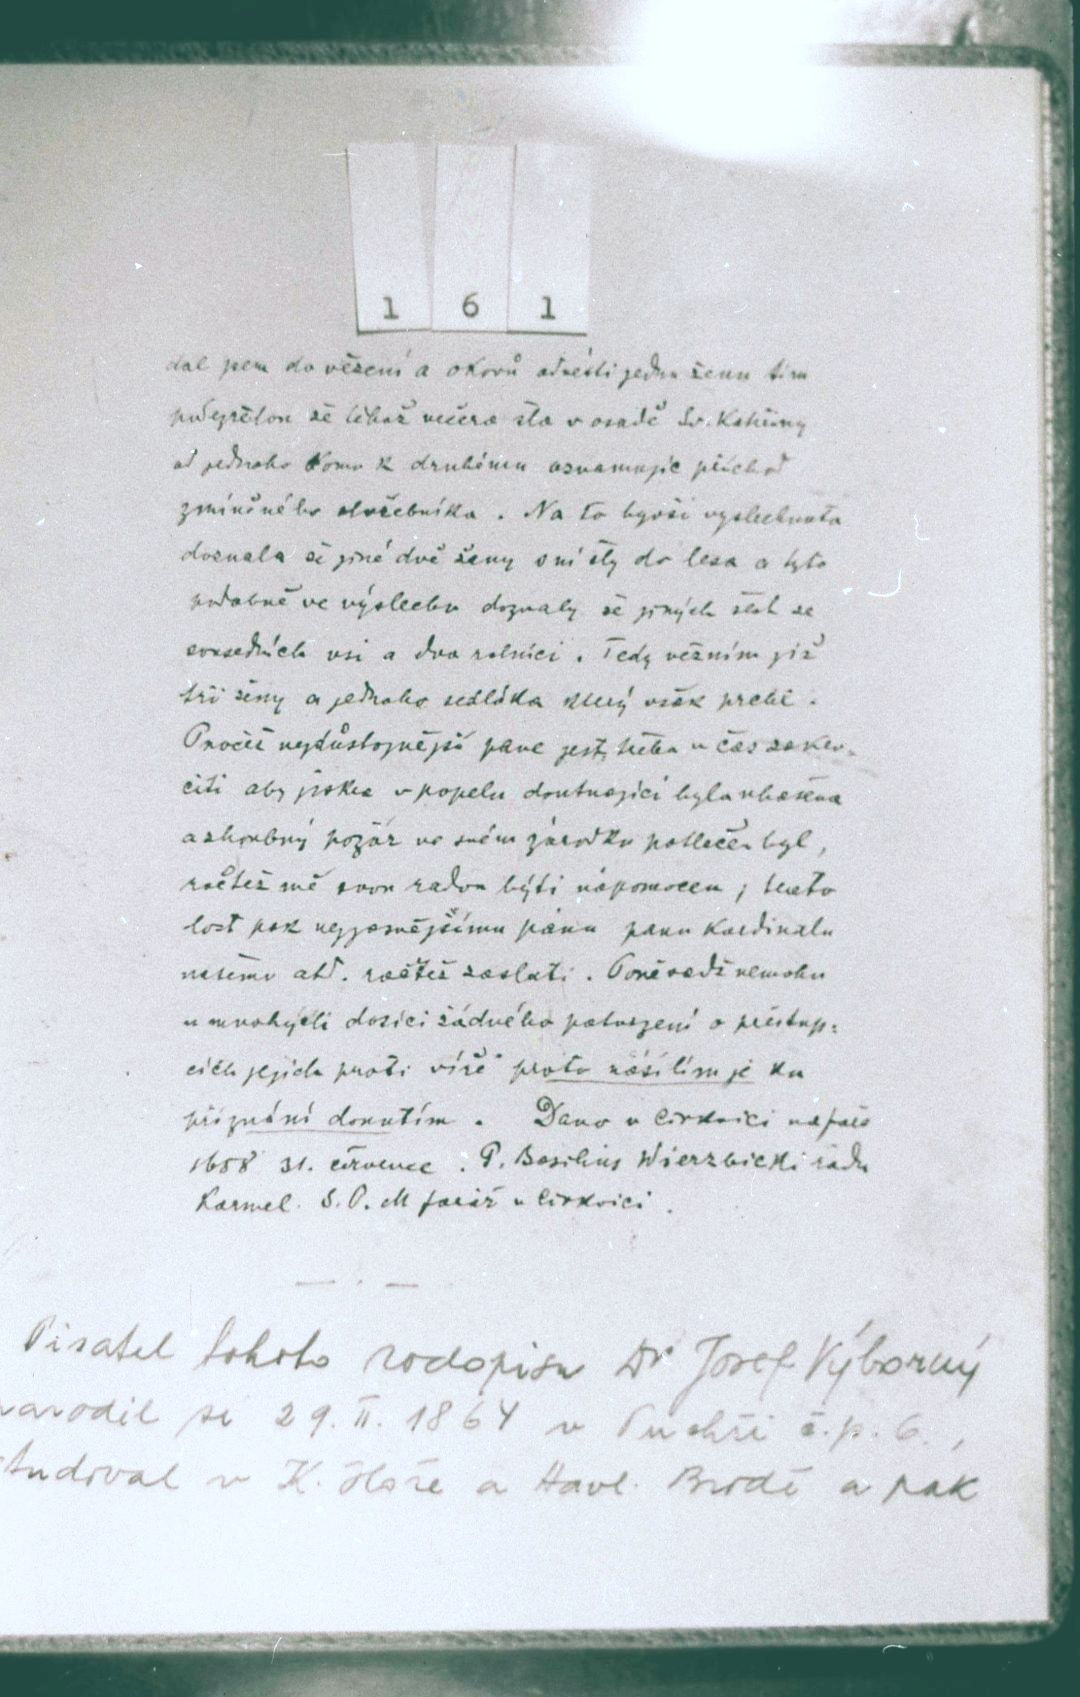 1 6 1
dal jsem do vězení a okovů odvésti jednu ženu tím
podezřelou že téhož večera šla v osadě Sv. Kateřiny
od jednoho domu k druhému oznamujíc příchod
zmíněného služebníka. Na to byvši vyslechnuta
doznala že jiné dvě ženy s ní šly do lesa a tyto
podobně ve výslechu doznaly že jiných šest ze
sousedních vsí a dva rolníci. Tedy vězním již
tři ženy a jednoho sedláka který však prchl.
Pročež nejdůstojnější pane jest třeba v čas zakro-
čiti aby jiskra v popelu doutnající byla uhašena
a zhoubný požár ve svém zárodku potlačen byl,
račtež mě svou radou býti nápomocen, tuto
lost pak nejjasnějšímu pánu panu Kardinalu
našemu atd. račtež zaslati. Poněvadž nemohu
u mnohých dosíci žádného potvrzení o přestup-
cích jejich proti víře proto násilím je ku
přiznání donutím. Dano v Cirkvici na faře
1688 31. července. P. Basilius Wierzbicki řádu
Karmel. S. P. M farář v Cirkvici.
Pisatel tohoto rodopisu Dr Josef Výborný
narodil se 29. II. 1864 v Puchři č.p. 6.,
studoval v K. Hoře a Havl. Brodě a pak